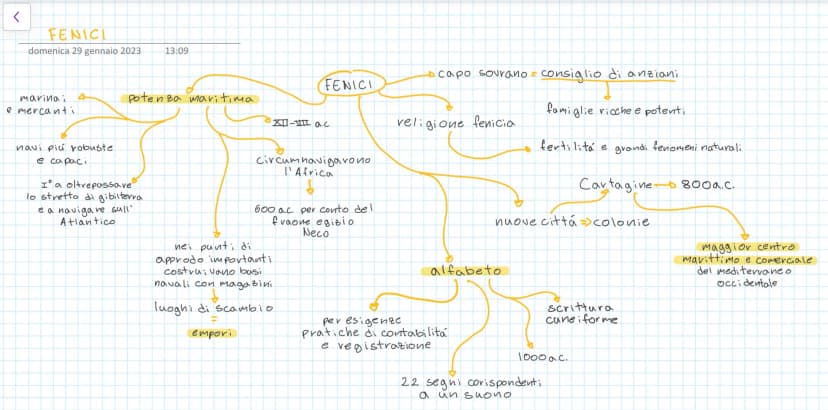 FENICI
domenica 29 gennaio 2023 13:09
FENICI
capo sovrano = consiglio di anziani
famiglie ricche e potenti
religione fenicia
fertilitá e grandi fenomeni naturali
potenza marittima
marinai
e mercanti
navi piú robuste
e capaci
Iᵒ a oltrepassare
lo stretto di gibilterra
e a navigare sull'
Atlantico
XII-VII a.c
circumnavigarono
l'Africa
600 a.c per conto del
fraone egizio
Neco
nei punti di
approdo importanti
costruivano basi
navali con magazzini
luoghi di scambio
=
empori
nuove cittá => colonie
Cartagine → 800 a.c.
maggior centro
marittimo e comerciale
del mediterraneo
occidentale
alfabeto
per esigenze
pratiche di contabilitá
e registrazione
22 segni corispondenti
a un suono
1000 a.c.
scrittura
cuneiforme